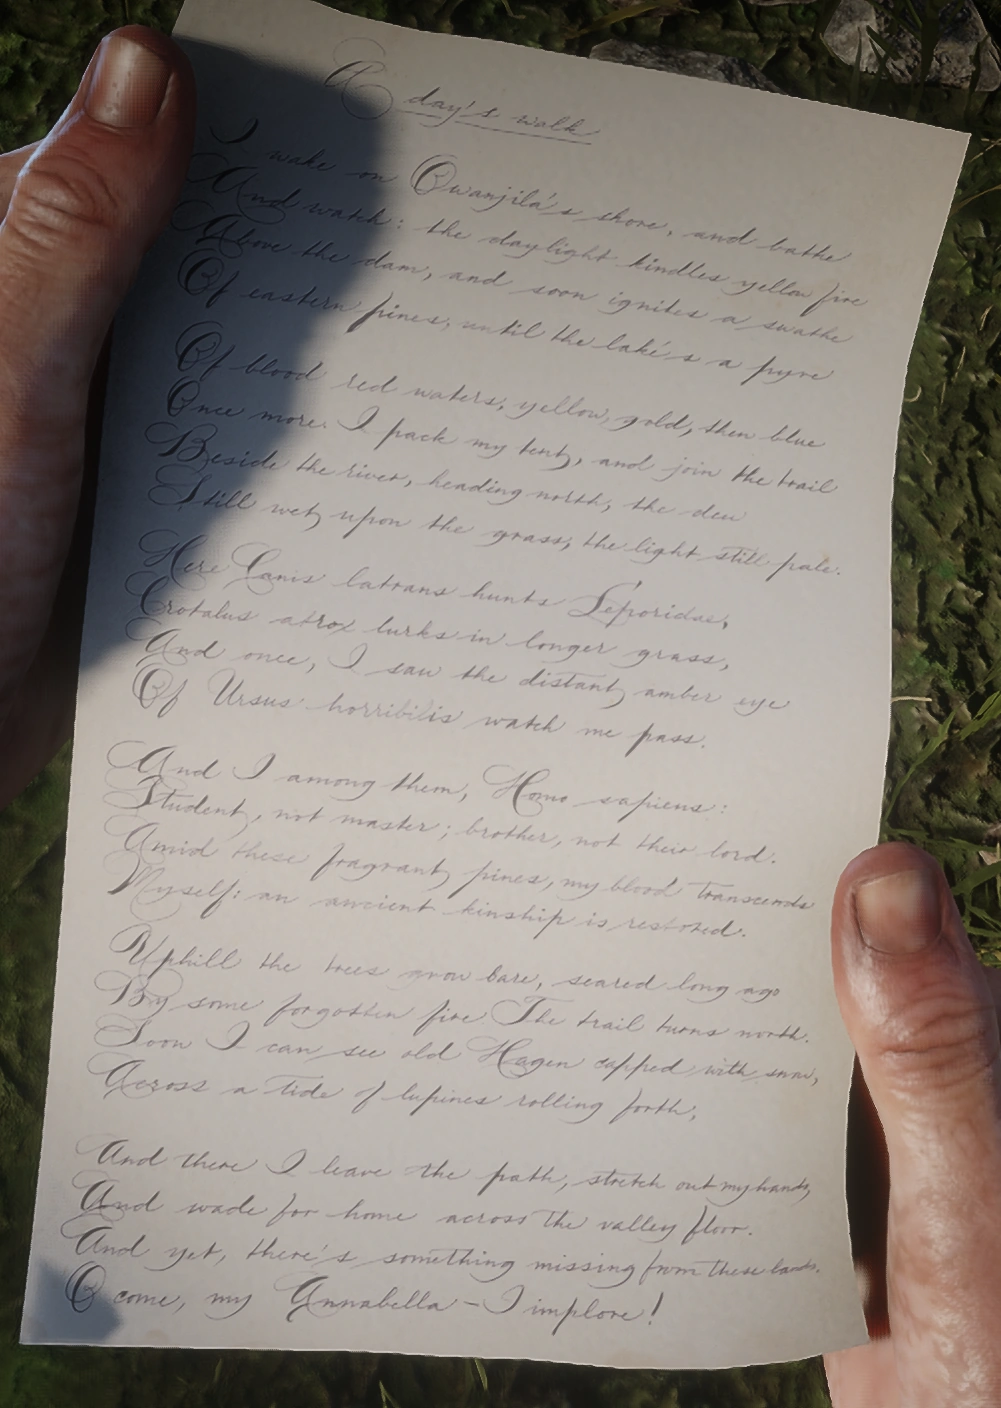 A day's walk
I wake on Owanjila's shore, and bathe
And watch: the daylight kindles yellow fire
Above the dam, and soon ignites a swathe
Of eastern pines, until the lake's a pyre
Of blood red waters, yellow, gold, then blue
Once more. I pack my tent, and join the trail
Beside the river, heading north, the dew
Still wet upon the grass, the light still pale.
Here Canis latrans hunts Leporidae,
Crotalus atrox lurks in longer grass,
And once, I saw the distant amber eye
Of Ursus horribilis watch me pass.
And I among them, Homo sapiens:
Student, not master; brother, not their lord.
Amid these fragrant pines, my blood transcends
Myself: an ancient kinship is restored.
Uphill the trees grow bare, seared long ago
By some forgotten fire The trail turns north.
Soon I can see old Hagen capped with snow,
Across a tide of lupines rolling forth,
And there I leave the path, stretch out my hands,
And wade for home across the valley floor.
And yet, there's something missing from these lands.
O come, my Annabella – I implore!